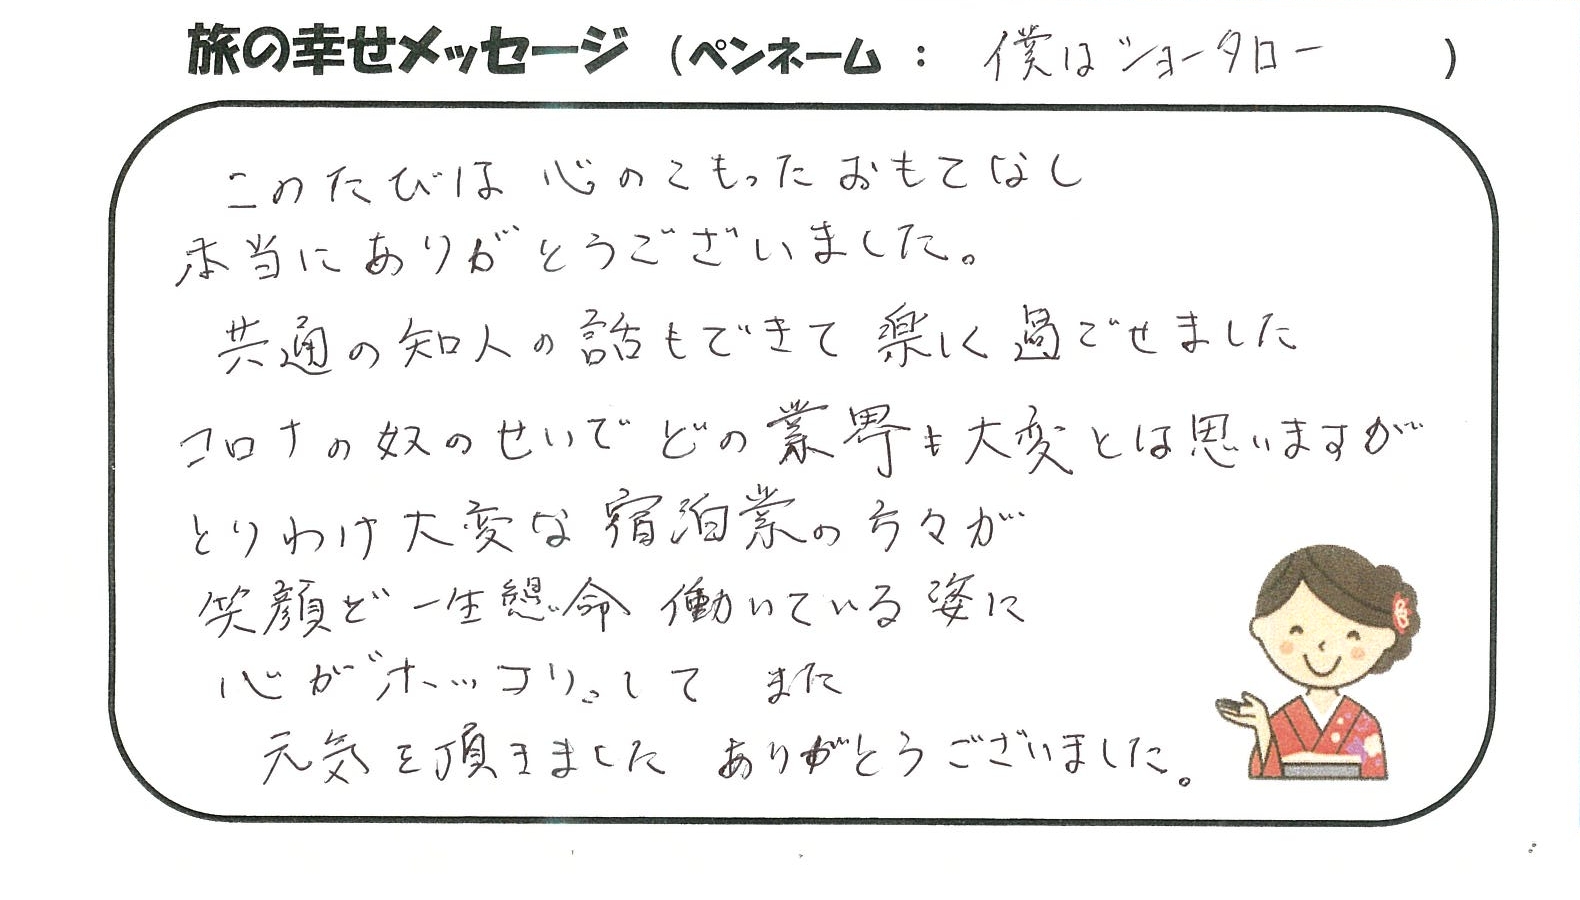 旅の幸せメッセージ (ペンネーム : 僕はショータロー )
このたびは 心のこもった おもてなし
本当に ありがとうございました。
共通の知人の話もできて 楽しく過ごせました
コロナの奴のせいで どの業界も大変とは思いますが
とりわけ大変な宿泊業の方々が
笑顔で 一生懸命 働いている姿に
心がホッコリ。して また
元気を頂きました ありがとうございました。